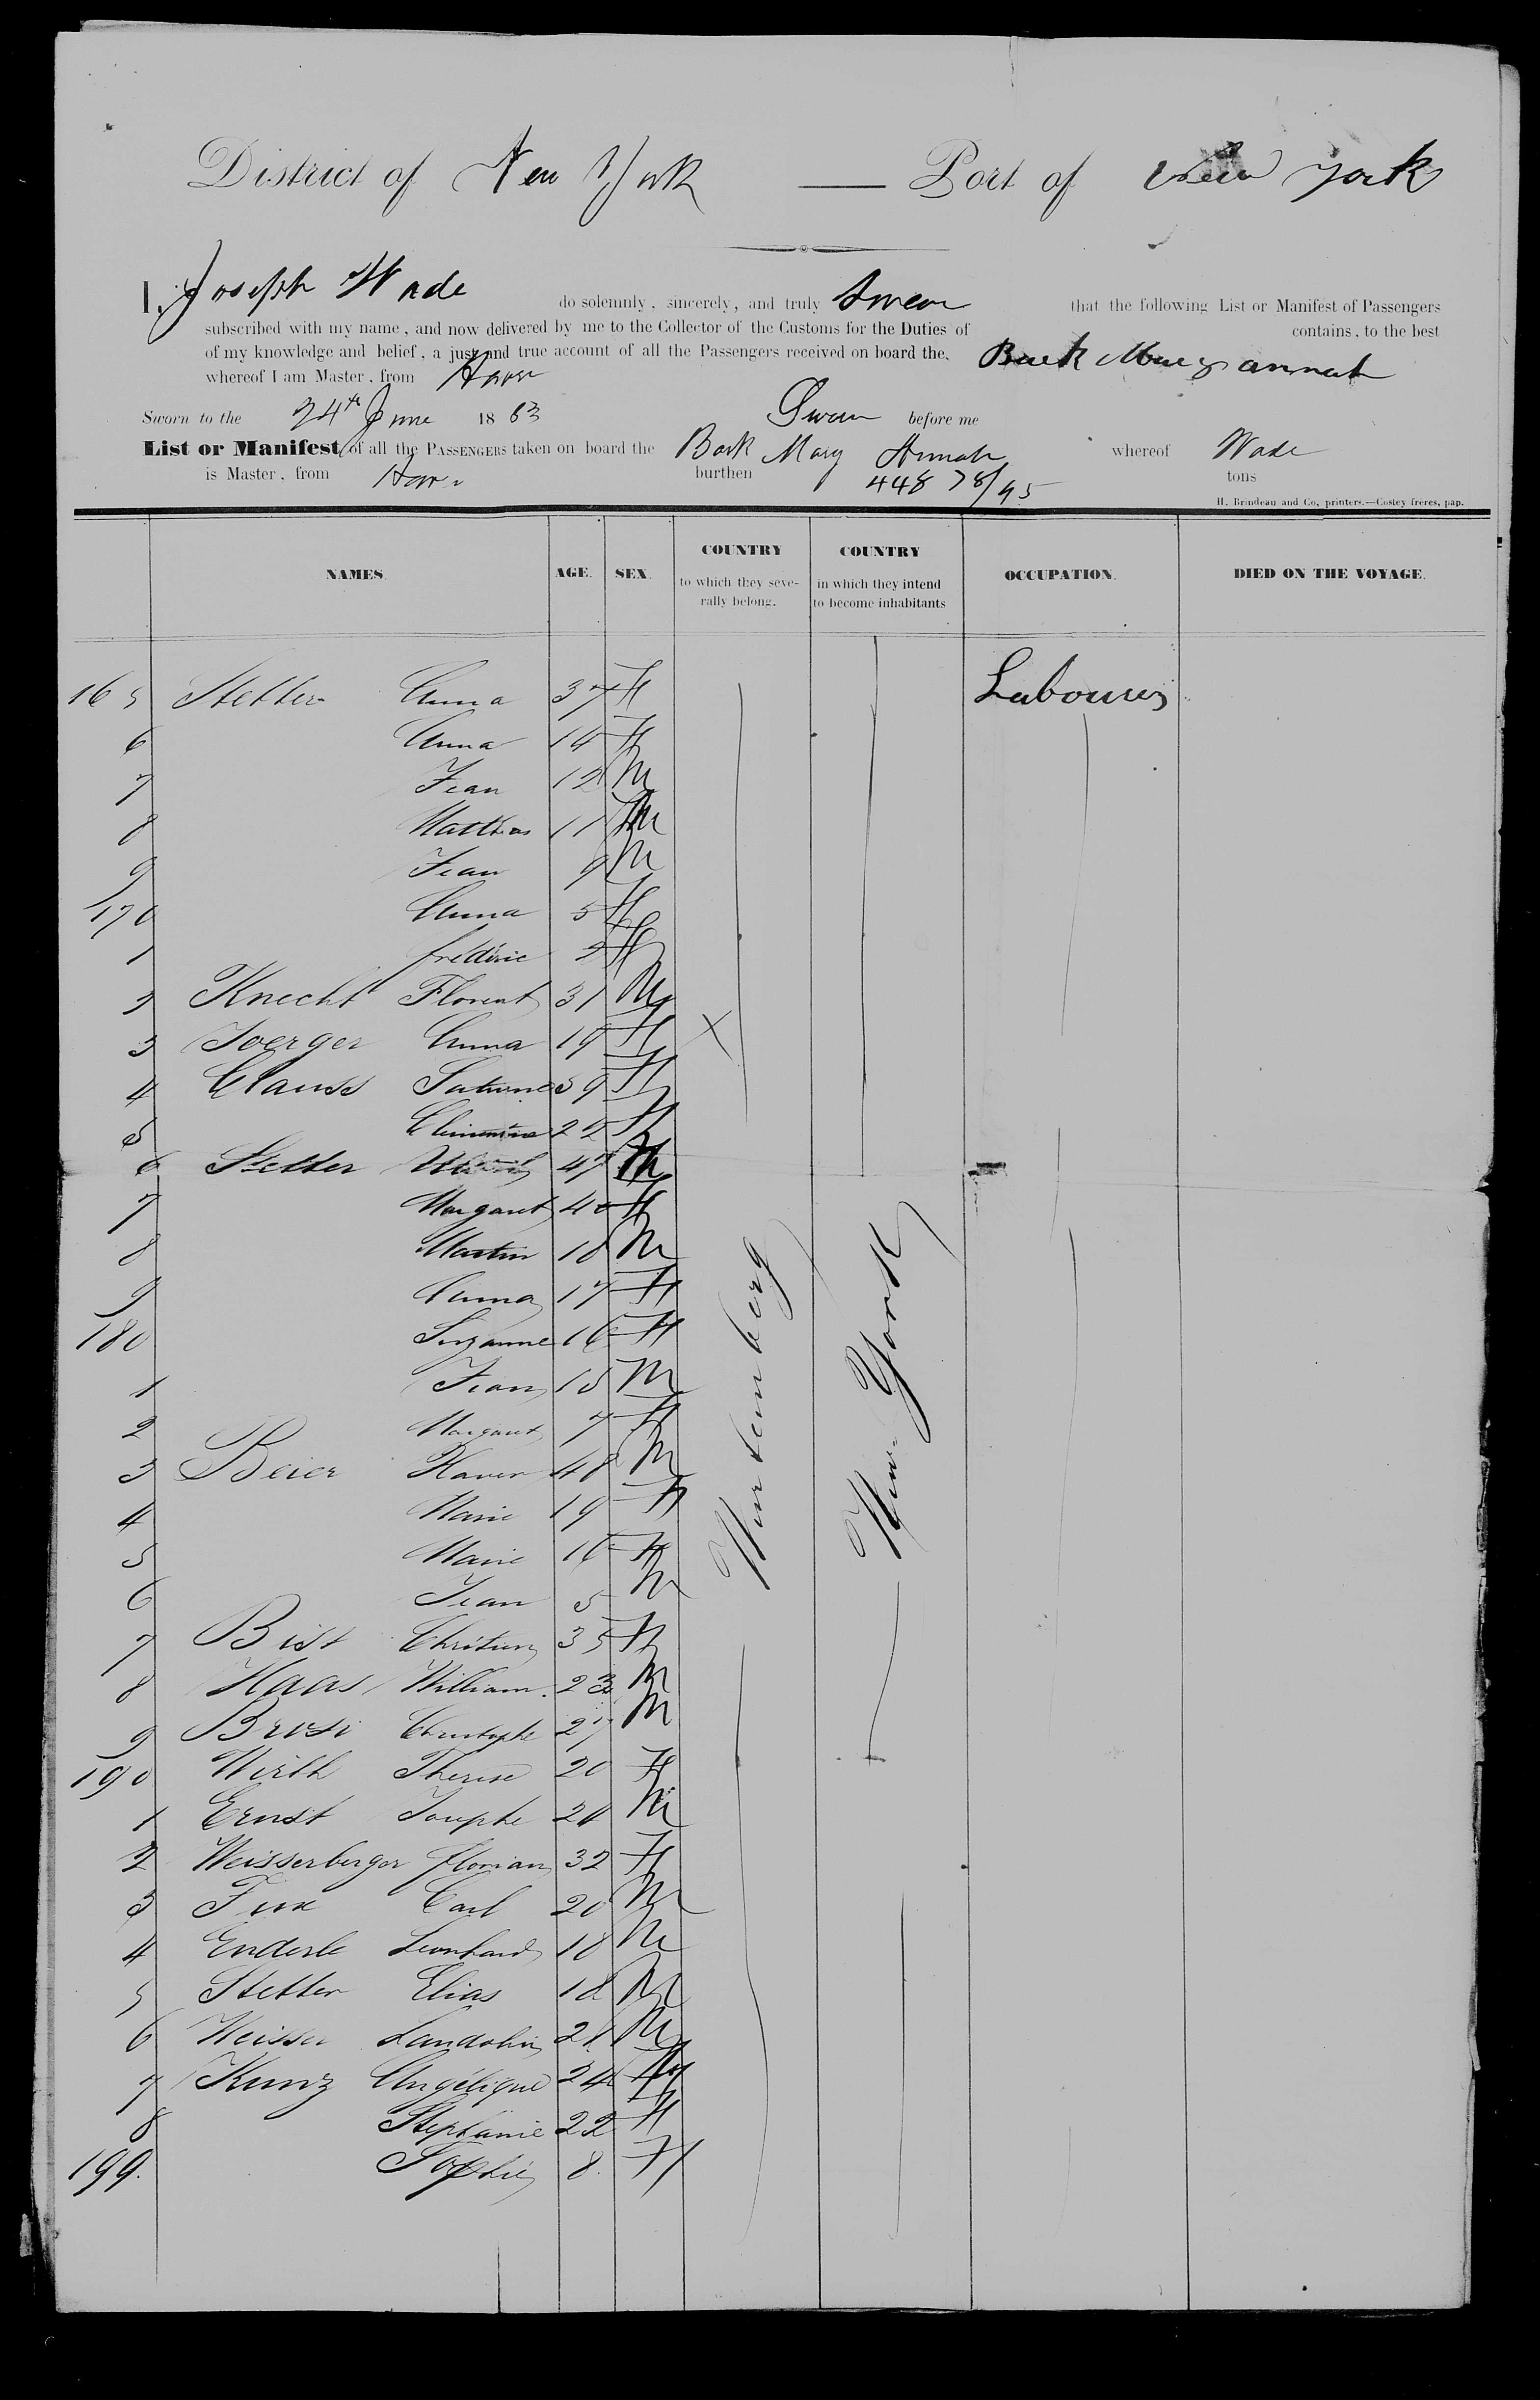 District of New York — Port of New York
I, Joseph Wade do solemnly, sincerely, and truly Swear that the following List or Manifest of Passengers
subscribed with my name, and now delivered by me to the Collector of the Customs for the Duties of contains, to the best
of my knowledge and belief, a just and true account of all the Passengers received on board the, Bark Mary annah
whereof I am Master, from Havre
Sworn to the 24th June 1863 Swear before me
List or Manifest of all the PASSENGERS taken on board the Bark Mary Annah whereof Wade
is Master, from Havre burthen 448 78/95 tons
H. Brindeau and Co, printers.—Costey frères, pap.
NAMES. AGE. SEX. COUNTRY to which they severally belong. COUNTRY in which they intend to become inhabitants OCCUPATION. DIED ON THE VOYAGE.
165 Stetter Anna 37 F Labourers
6 Anna 14 F
7 Jean 12 M
8 Mathias 11 M
9 Jean 9 M
170 Anna 5 F
1 fréderic 2 F
2 Knecht Florent 31 M
3 Joerger Anna 19 F
4 Clauss 59 F
5 Clementine 22 F
6 Stetter 47 M
7 Margaret 40 F
8 Martin 18 M
9 Anna 17 F
180 Suzanne 16 F
1 Jean 15 M
2 Margaret 7 F
3 Beier Xaver 48 M
4 Marie 19 F
5 Marie 16 F
6 Jean 5 M
Wurtemberg
New York
7 Bist Christian 35 F
8 Haas William. 23 M
9 Brusi Christophe 27 M
190 Wirth Therese 20 F
1 Ernst Josephe 24 M
2 Weisserberger florian 32 F
3 Carl 20 M
4 Enderle Leonhard 18 M
5 Stetter Elias 18 M
6 Weisser Landolin 21 M
7 Kunz Angélique 24 F
8 Stephanie 22 F
199. Sophie 8. F